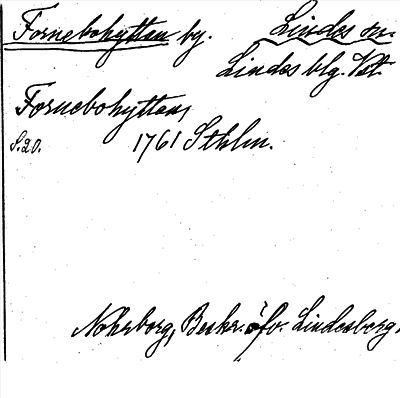 Fornebohyttan by. Lindes sn.
Lindes blg. Vstm.
Fornebohyttan,
S.20. 1761 Sthlm.
Nohrborg, Beskr. öfv. Lindesberg,